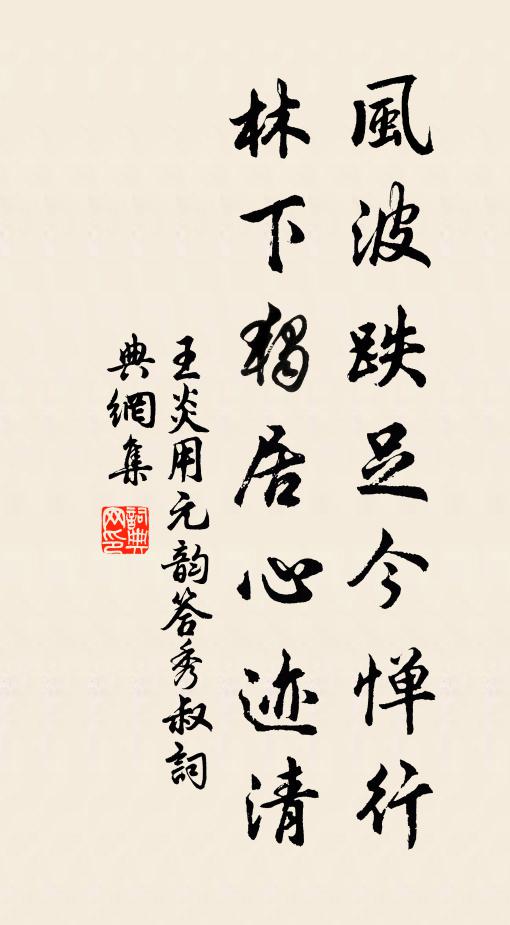 風波跌足今惮行
林下獨居心迹清
王炎用元韵答秀叔詞
典網集
詞典網印